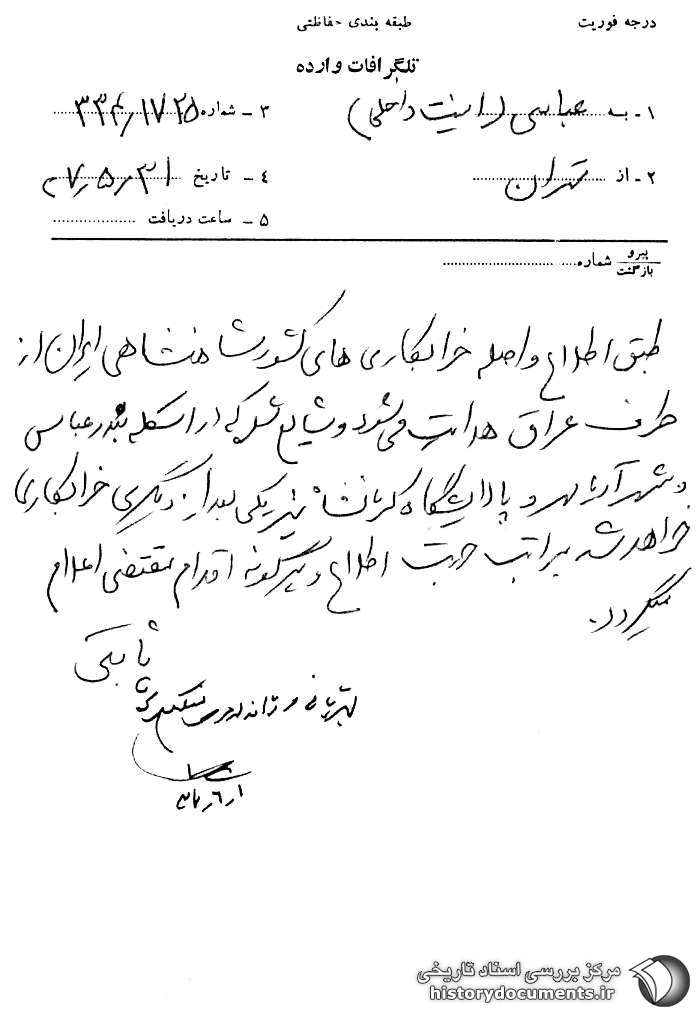 درجه فوریت
طبقه بندی حفاظتی
تلگرافات وارده
۱- به عباسی (امنیت داخلی)
۳ - شماره ۳۳۴٫۱۷۲۵
۲- از تهران
۴ - تاریخ ۳۱ر۵ر۲۷
۵ - ساعت دریافت
پیرو
بازگشت
شماره
طبق اطلاع واصله خرابکاری های کشور شاهنشاهی ایران از
طرف عراق هدایت می شود و شایع شده که در اسکله بندرعباس
و شهر آریامهر و پالایشگاه کرمانشاه نیز یکی بعد از دیگری خرابکاری
خواهد شد مراتب جهت اطلاع و هرگونه اقدام مقتضی اعلام
میگردد.
ثابتی
بشهربانی و ژاندارمری منعکس
مرکز بررسی اسناد تاریخی
historydocuments.ir